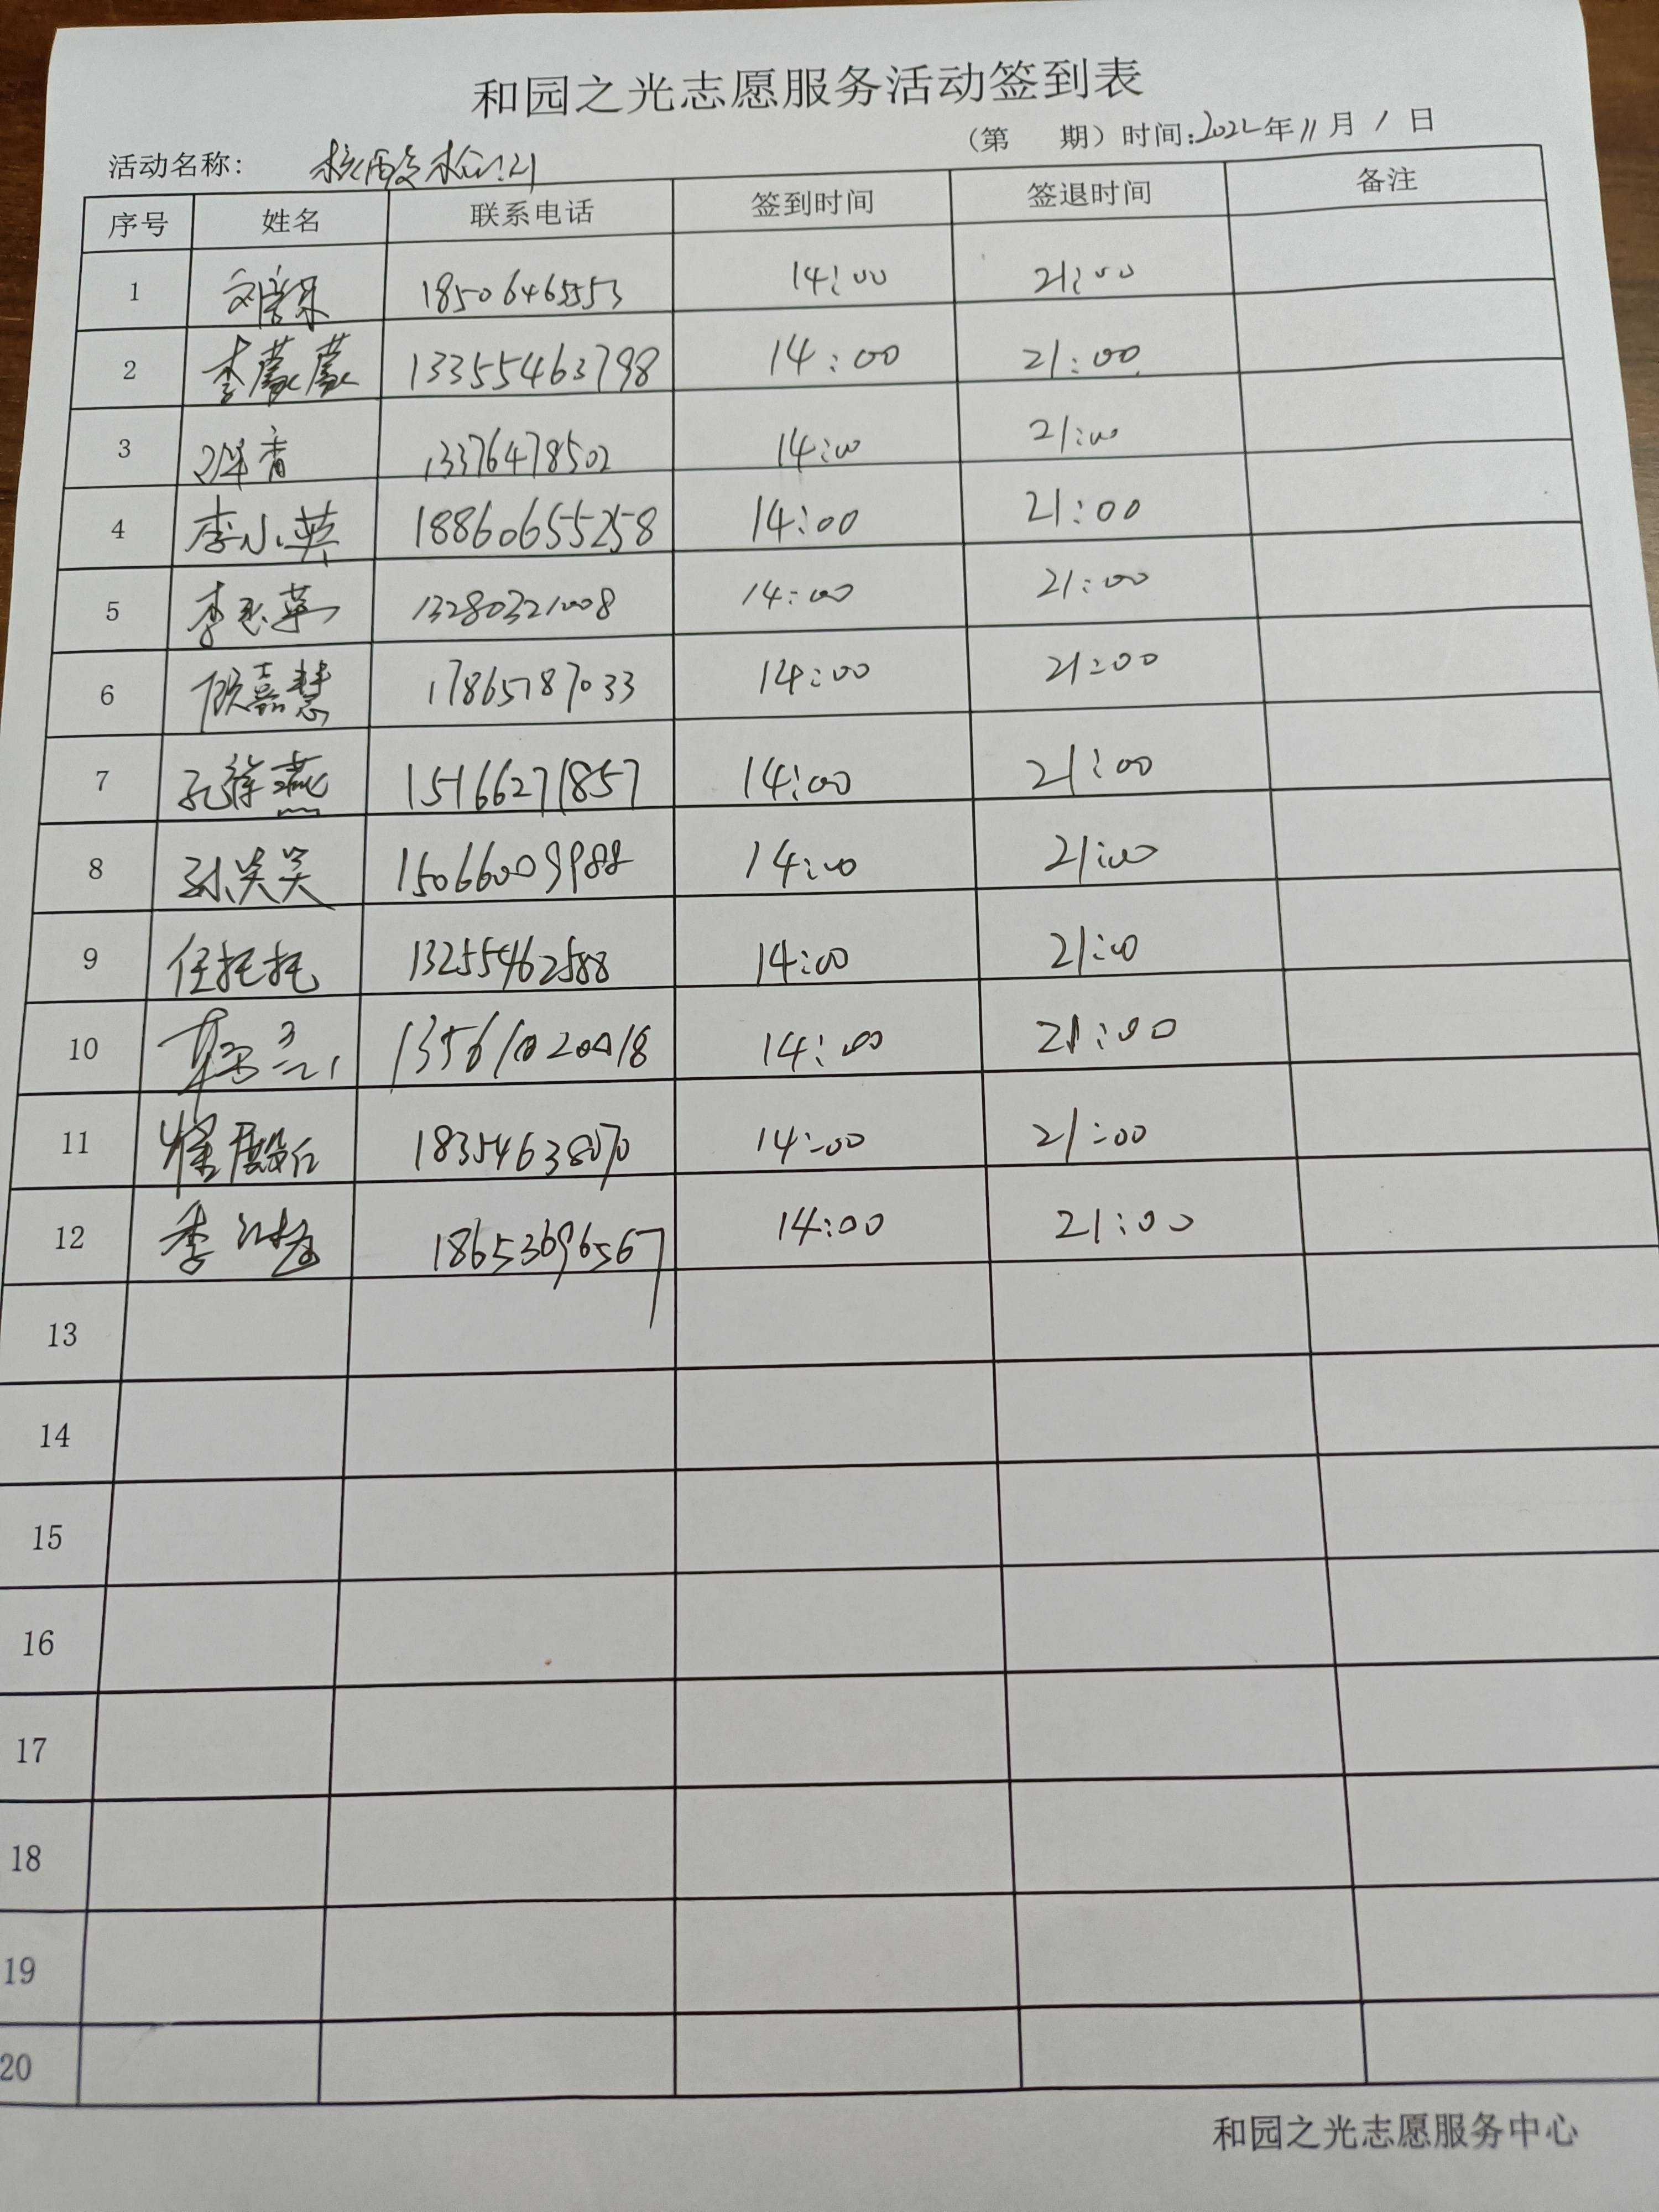 和园之光志愿服务活动签到表
(第 期) 时间:2022年11月1日
活动名称: 核酸检测
序号 姓名 联系电话 签到时间 签退时间 备注
1 18506465553 14:00 21:00
2 李蒙蒙 13355463798 14:00 21:00
3 13376478502 14:00 21:00
4 李小英 18860655258 14:00 21:00
5 李玉革 13280321008 14:00 21:00
6 嘉慧 17865787033 14:00 21:00
7 15166271857 14:00 21:00
8 孙笑笑 15066009988 14:00 21:00
9 任托托 13255462588 14:00 21:00
10 14:00 21:00
11 18354638070 14:00 21:00
12 18653696567 14:00 21:00
13
14
15
16
17
18
19
20
和园之光志愿服务中心